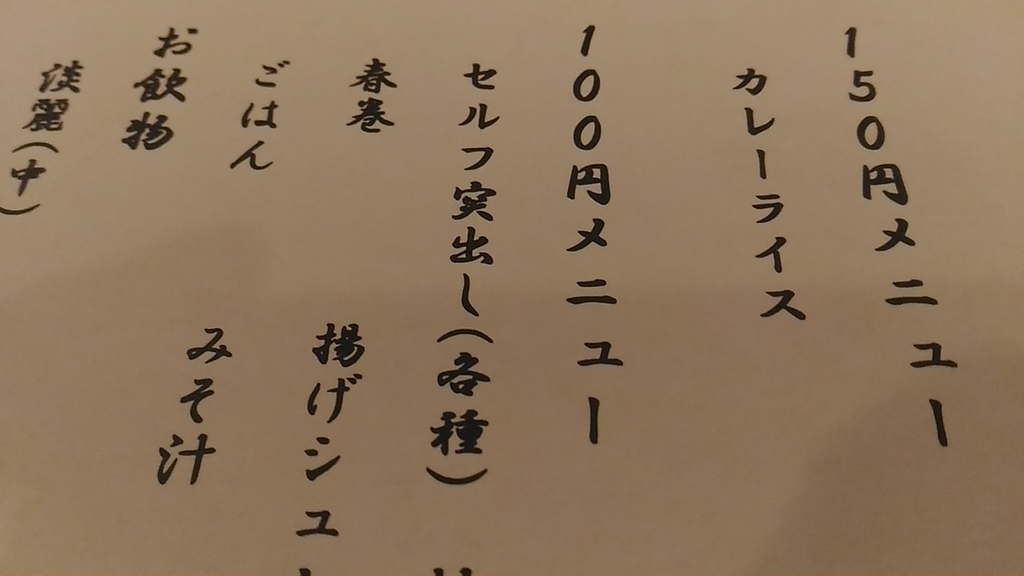 150円メニュー
カレーライス
100円メニュー
セルフ突出し(各種)
春巻
揚げシュ
ごはん
みそ汁
お飲物
淡麗(中)